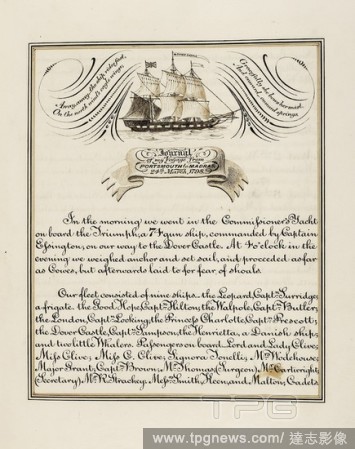 Away, away, the ship rides fast,
On the north wind's eagle wings,
Gracefully
Journal
of my Voyage from
PORTSMOUTH to MADRAS
24th March, 1798.
In the morning we went in the Commissioner's Yacht
on board the Triumph, a 74 gun ship, commanded by Captain
Essington, on our way to the Dover Castle. At 4 o'clock in the
evening we weighed anchor and set sail, and proceeded as far
as Cowes, but afterwards laid to for fear of shoals.
Our fleet consisted of nine ships _ the Leopard, Capt. Surridge,
a frigate. the Good Hope, Capt. Hilton; the Walpole, Capt. Butler;
the London, Capt. Lockiny; the Princess Charlotte, Capt. Prescott;
the Dover Castle, Capt. Sampson; the Henrietta, a Danish ship;
and two little Whalers. Passengers on board _ Lord and Lady Clive;
Miss Clive; Miss C. Clive; Signora Tonelli; Mrs Wodehouse;
Major Grant; Capt. Brown; Mr Thomas (Surgeon); Mr Cartwright,
(Secretary). Mr R. Strachey, Messrs Smith, Keen, and Malton, Cadets
TPG
www.tpgnews.com/達志影像